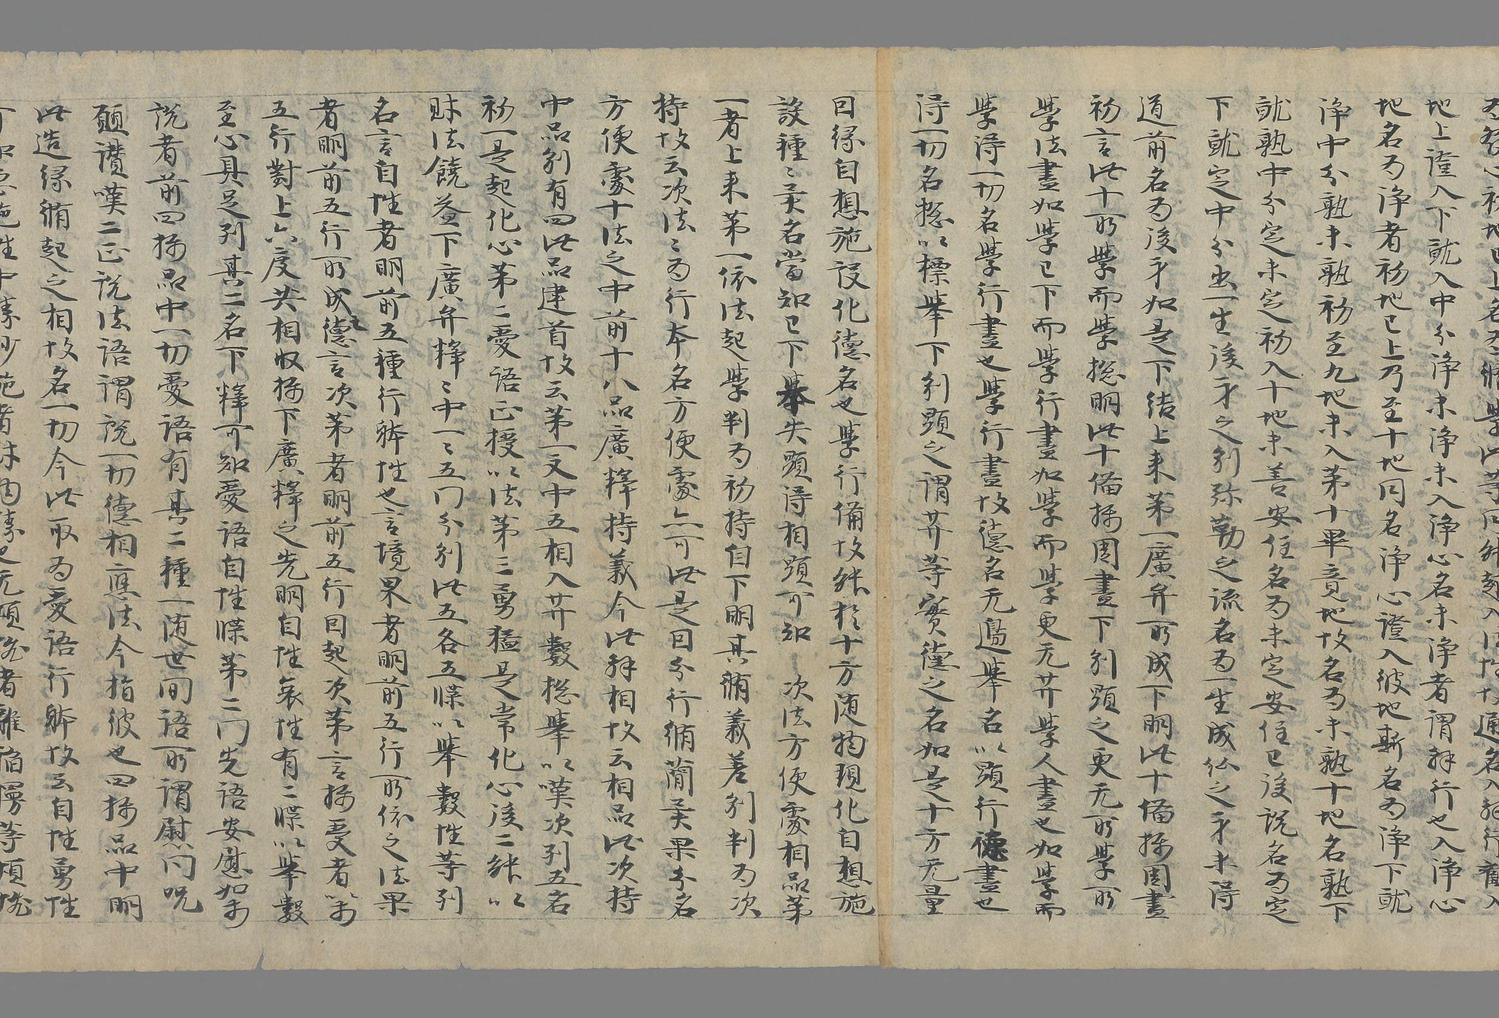 地上證入下就入中分淨未淨未入淨心名未淨者謂解行也入淨心
地名为淨者初地已上乃至十地同名淨心證入彼地斯名为淨下就
淨中分熟未熟初至九地未入第十畢竟地故名为未熟十地名熟下
就熟中分定未定初入十地未善安住名为未定安住已後說名为定
下就定中分出一生後身之別弥勒之流名为一生成仏之身未得
道前名为後身如是下結上来第一廣弁所成下明此十俻攝周盡
初言此十所學而學揔明此十俻攝周盡下別顯之更无所學所
學法盡如學已下而學行盡如學而學更无菩學人盡也如學而
學得一切名學行盡也學行盡故德名无過舉名以顯行德盡也
得一切名揔以標舉下別顯之謂菩等實德之名如是十方无量
因緣自想施設化德名也學行俻故能於十方随物現化自想施
設種種美名當知已下舉失顯得相顯可知 次法方便處相品第
一者上来第一依法起學判为初持自下明其脩義差別判为次
持故云次法法为行本名方便處亦可此是因分行脩簡美果分名
方便處十法之中前十八品廣釋持義今此弁相故云相品此次持
中品別有四此品建首故云第一文中五相入菩數揔舉以嘆次列五名
初一是起化心第二愛語正授以法第三勇猛是常化心後二能以
財法饒益下廣弁釋釋中一一五門分別此五各五㬹以舉數性等列
名言自性者明前五種行躰性也言境果者明前五行所依之法果
者明前五行所成德言次第者明前五行因起次第言攝受者以
五行對上六度共相収攝下廣釋之先明自性哀性有二㬹以舉數
至心具足列其二名下釋可知愛語自性㬹第二門先語安慰如
說者前四攝品中一切愛語有其二種一随世間語所謂慰問呪
願讚嘆二正說法語謂說一切德相應法今指彼也四攝品中明
此造緣脩起之相故名一切今此取为愛語行躰故云自性勇性